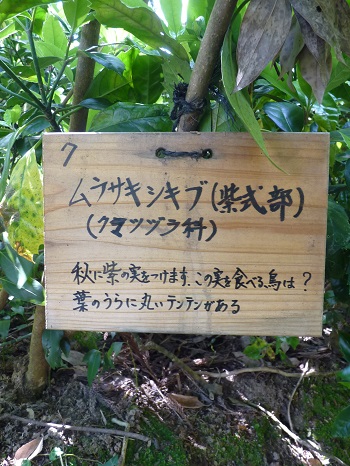 7
ムラサキシキブ(紫式部)
(クマツヅラ科)
秋に紫の実をつけます、この実を食べる鳥は?
葉のうらに丸いテンテンがある